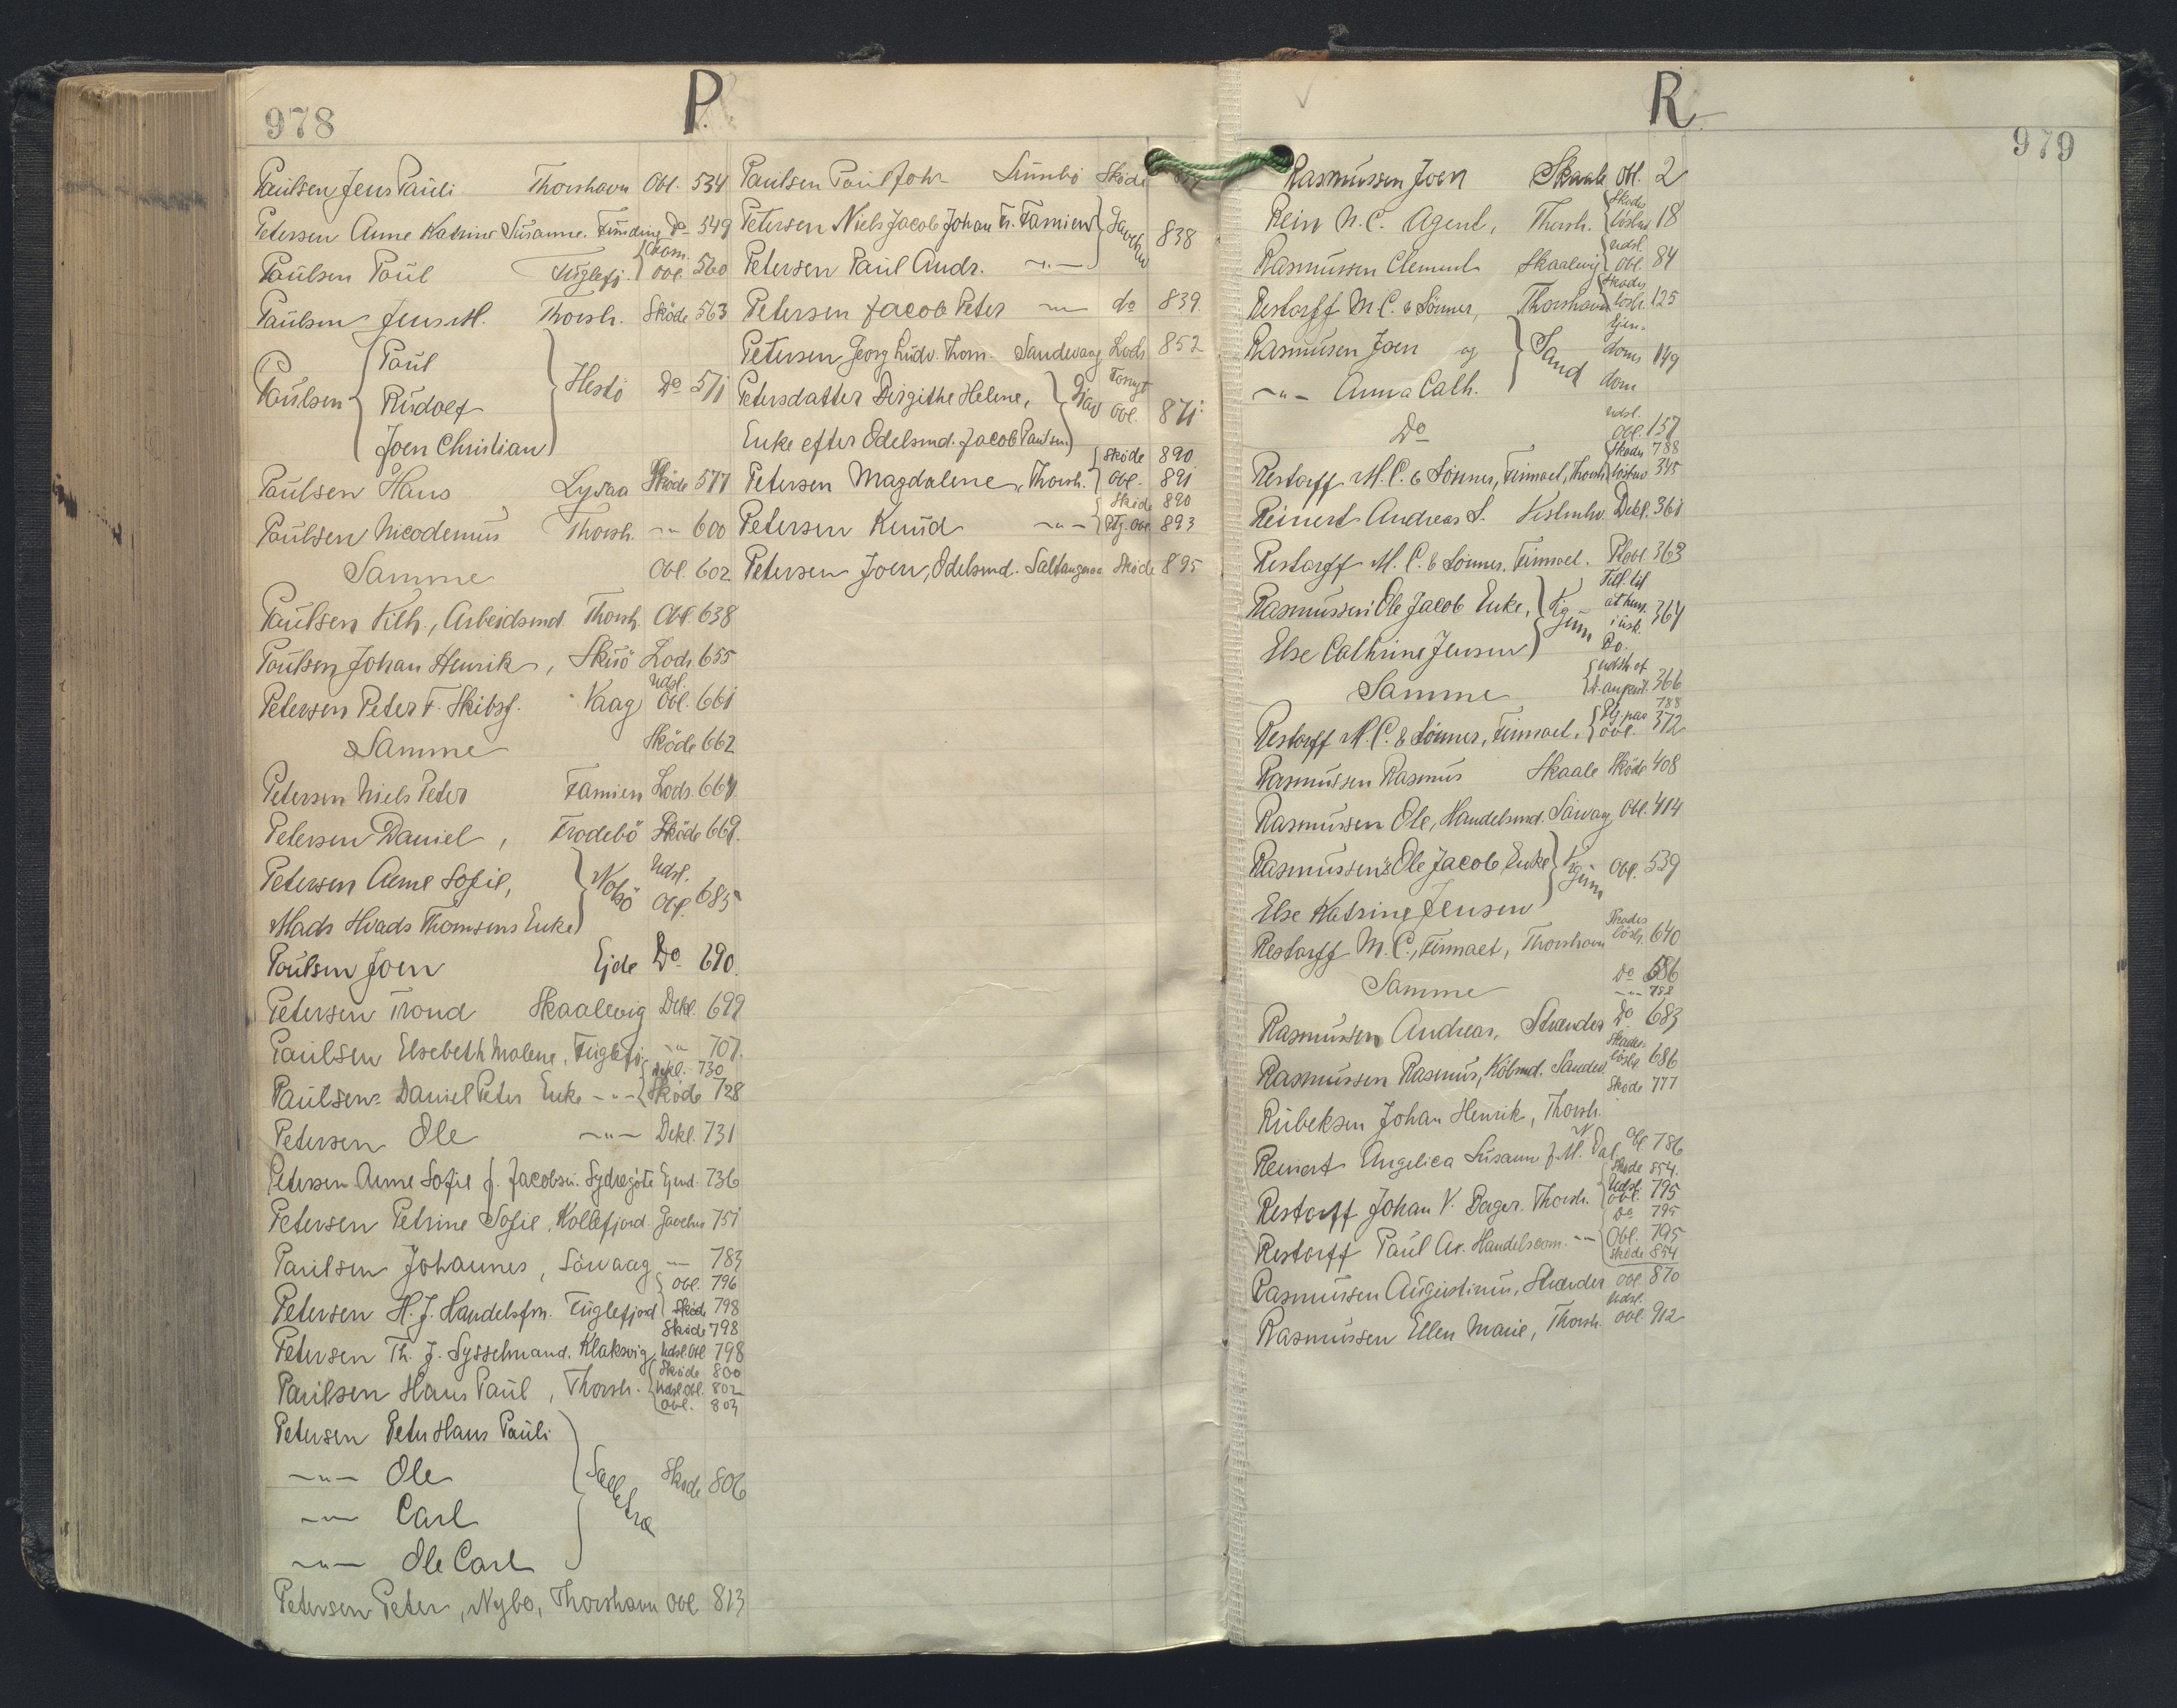 978
P.
Paulsen Jens Pauli Thorshavn Obl. 534
Petersen Anne Katrine Susanne. Funding Do 549
Paulsen Paul Fuglefj. Obl. 560
Paulsen Jens M. Thorsh. Sköde 563
Paulsen Paul
Rudolf Hestö Do 571
Joen Christian
Paulsen Hans Lysaa Sköde 577
Paulsen Nicodemus Thorsh. -"- 600
Samme Obl. 602
Paulsen Vilh., Arbeidsmd. Thorsh. Obl. 638
Poulsen Johan Henrik, Skuö Lods 655
Petersen Peter F. Skibsf. Vaag Udsl. Obl. 661
Samme Sköde 662
Petersen Niels Peter Famien Lods. 664
Petersen Daniel, Frodebö Sköde 669.
Petersen Anne Sofie, Nolsö Udsl. Obl. 685
Mads Hvads Thomsens Enke
Paulsen Joen Ejde Do 690.
Petersen Trond Skaalevig Dekl. 699
Paulsen Elsebeth Malene, Fuglefj. -"- 707.
Paulsens Daniel Peter Enke -"- Dekl. 730 Sköde 728
Petersen Ole -"- Dekl. 731
Petersen Anne Sofie f. Jacobsen. Sydregöte Ejend. 736
Petersen Petrine Sofie, Kollefjord. 751
Paulsen Johannes, Sörvaag -"- 783
Petersen H. J. Handelsfm. Fuglefjord Obl. 796 Sköde 798
Petersen Th. J. Sysselmand. Klaksvig Sköde 798 Udsl. Obl 798
Paulsen Hans Paul, Thorsh. Sköde 800 Udsl. Obl. 802 Obl. 803
Petersen Peter Hans Pauli
-"- Ole Sköde 806
-"- Carl
-"- Ole Carl
Petersen Peter, Nybo, Thorshavn Obl 813
Paulsen Paul Johs Sumbö Sköde
Petersen Niels Jacob Johan Fr. Famien 838
Petersen Paul Andr. -"-
Petersen Jacob Peter -"- do 839
Petersen Georg Ludv. Thom. Sandevaag Lods 852
Petersdatter Birgithe Helene, Obl. 871
Enke efter Odelsmd. Jacob Paulsen
Petersen Magdalene, Thorsh. Sköde 890 Obl. 891
Petersen Knud -"- Sköde 890 Obl 893
Petersen Joen, Odelsmd. Saltangeraa Sköde 895
979
R.
Rasmussen Joen Skaale Obl. 2
Rein N. C. Agent, Thorsh. Skades löshol 18
Rasmussen Clement Skaalevig Udsl. Obl. 84
Restorff M. C. & Sönner, Thorshavn Skades lösh. 125
Rasmussen Joen og Sand Ejen- doms dom 149
-"- Anna Cath.
Do Udsl. Obl. 157
Restorff M. C. & Sönner, Firmaet, Thorsh. Skades 788 345
Reinert Andreas S. Vestmhv. Dekl. 361
Restorff M. C. & Sönner. Firmaet. 363
Rasmussens Ole Jacob Enke, 364
Else Cathrine Jensen
Samme 366
Restorff M. C. & Sönner, Firmaet. 788 Obl. 372
Rasmussen Rasmus Skaale Sköde 408
Rasmussen Ole, Handelsmd. Sörvaag Obl. 414
Rasmussens Ole Jacob Enke Obl. 539
Else Katrine Jensen
Restorff M. C., Firmaet, Thorshavn Skades lösh. 640
Samme Do 686 -"- 788
Rasmussen Andreas, Strænder Do 683
Rasmussen Rasmus, Köbmd. Sandev. Skades lösh. 686
Rubeksen Johan Henrik, Thorsh. Sköde 777
Reinert Angelica Susanne f. M. Dal. Obl 786
Restorff Johan V. Bager. Thorsh. Sköde 854. Udsl. Obl. 795 Do 795
Restorff Paul Ar. Handelscom. -"- Obl. 795 Sköde 854
Rasmussen Augustinus, Strænder Obl. 870
Rasmussen Ellen Marie, Thorsh. Udsl. Obl. 912